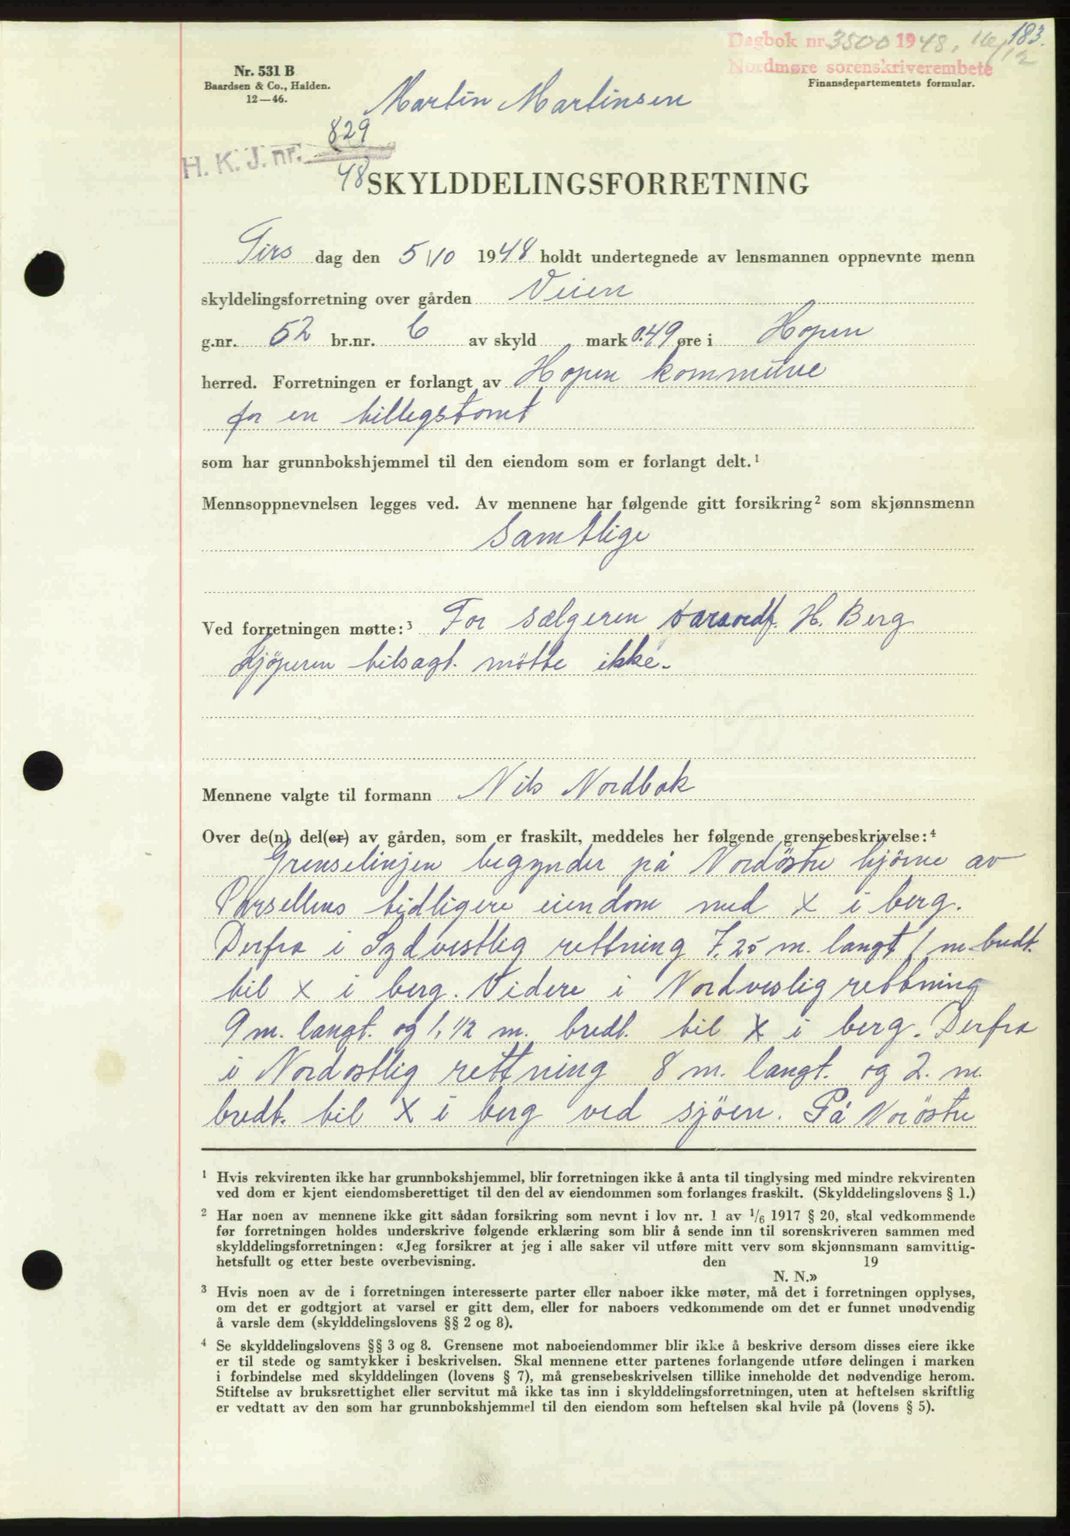 Dagbok nr. 3500 1948, 16/12 183.
Nordmøre sorenskriverembete
Nr. 531 B
Baardsen & Co., Halden.
12—46.
Finansdepartementets formular.
Martin Martinsen
H. K. J. nr. 829
48
SKYLDDELINGSFORRETNING
Tirs dag den 5/10 1948 holdt undertegnede av lensmannen oppnevnte menn
skyldelingsforretning over gården Veien
g.nr. 52 br.nr. 6 av skyld mark 0.49 øre i Hopen
herred. Forretningen er forlangt av Hopen kommune
for en tillegstomt
som har grunnbokshjemmel til den eiendom som er forlangt delt.¹
Mennsoppnevnelsen legges ved. Av mennene har følgende gitt forsikring² som skjønnsmenn
Samtlige
Ved forretningen møtte:³ For sælgeren varaordf. H. Berg
Kjöperen tilsagt. mötte ikke.
Mennene valgte til formann Nils Nordbak
Over de(n) del(er) av gården, som er fraskilt, meddeles her følgende grensebeskrivelse:⁴
Grenselinjen begynder på Nordöstre hjörne av
Parsellens tidligere eiendom med X i berg.
Derfra i Sydvestlig rettning 7,25 m. langt 1 m. bredt.
til X i berg. Videre i Nordveslig rettning
9 m. langt. og 1,1/2 m. bredt. til X i berg. Derfra
i Nordostlig rettning 8 m. langt. og 2. m.
bredt. til X i berg ved sjöen. På Noröstre
¹ Hvis rekvirenten ikke har grunnbokshjemmel, blir forretningen ikke å anta til tinglysing med mindre rekvirenten
ved dom er kjent eiendomsberettiget til den del av eiendommen som forlanges fraskilt. (Skylddelingslovens § 1.)
² Har noen av mennene ikke gitt sådan forsikring som nevnt i lov nr. 1 av 1/6 1917 § 20, skal vedkommende
før forretningen holdes underskrive følgende erklæring som blir å sende inn til sorenskriveren sammen med
skylddelingsforretningen: «Jeg forsikrer at jeg i alle saker vil utføre mitt verv som skjønnsmann samvittig-
hetsfullt og etter beste overbevisning. den 19
N. N.»
³ Hvis noen av de i forretningen interesserte parter eller naboer ikke møter, må det i forretningen opplyses,
om det er godtgjort at varsel er gitt dem, eller for naboers vedkommende om det er funnet unødvendig
å varsle dem (skylddelingslovens §§ 2 og 8).
⁴ Se skylddelingslovens §§ 3 og 8. Grensene mot naboeiendommer blir ikke å beskrive dersom disses eiere ikke
er til stede og samtykker i beskrivelsen. Skal mennene etter partenes forlangende utføre delingen i marken
i forbindelse med skylddelingen (lovens § 7), må grensebeskrivelsen tillike inneholde det nødvendige herom.
Stiftelse av bruksrettighet eller servitut må ikke tas inn i skylddelingsforretningen, uten at heftelsen skriftlig
er vedtatt av den som har grunnbokshjemmel til den eiendom som heftelsen skal hvile på (lovens § 5).